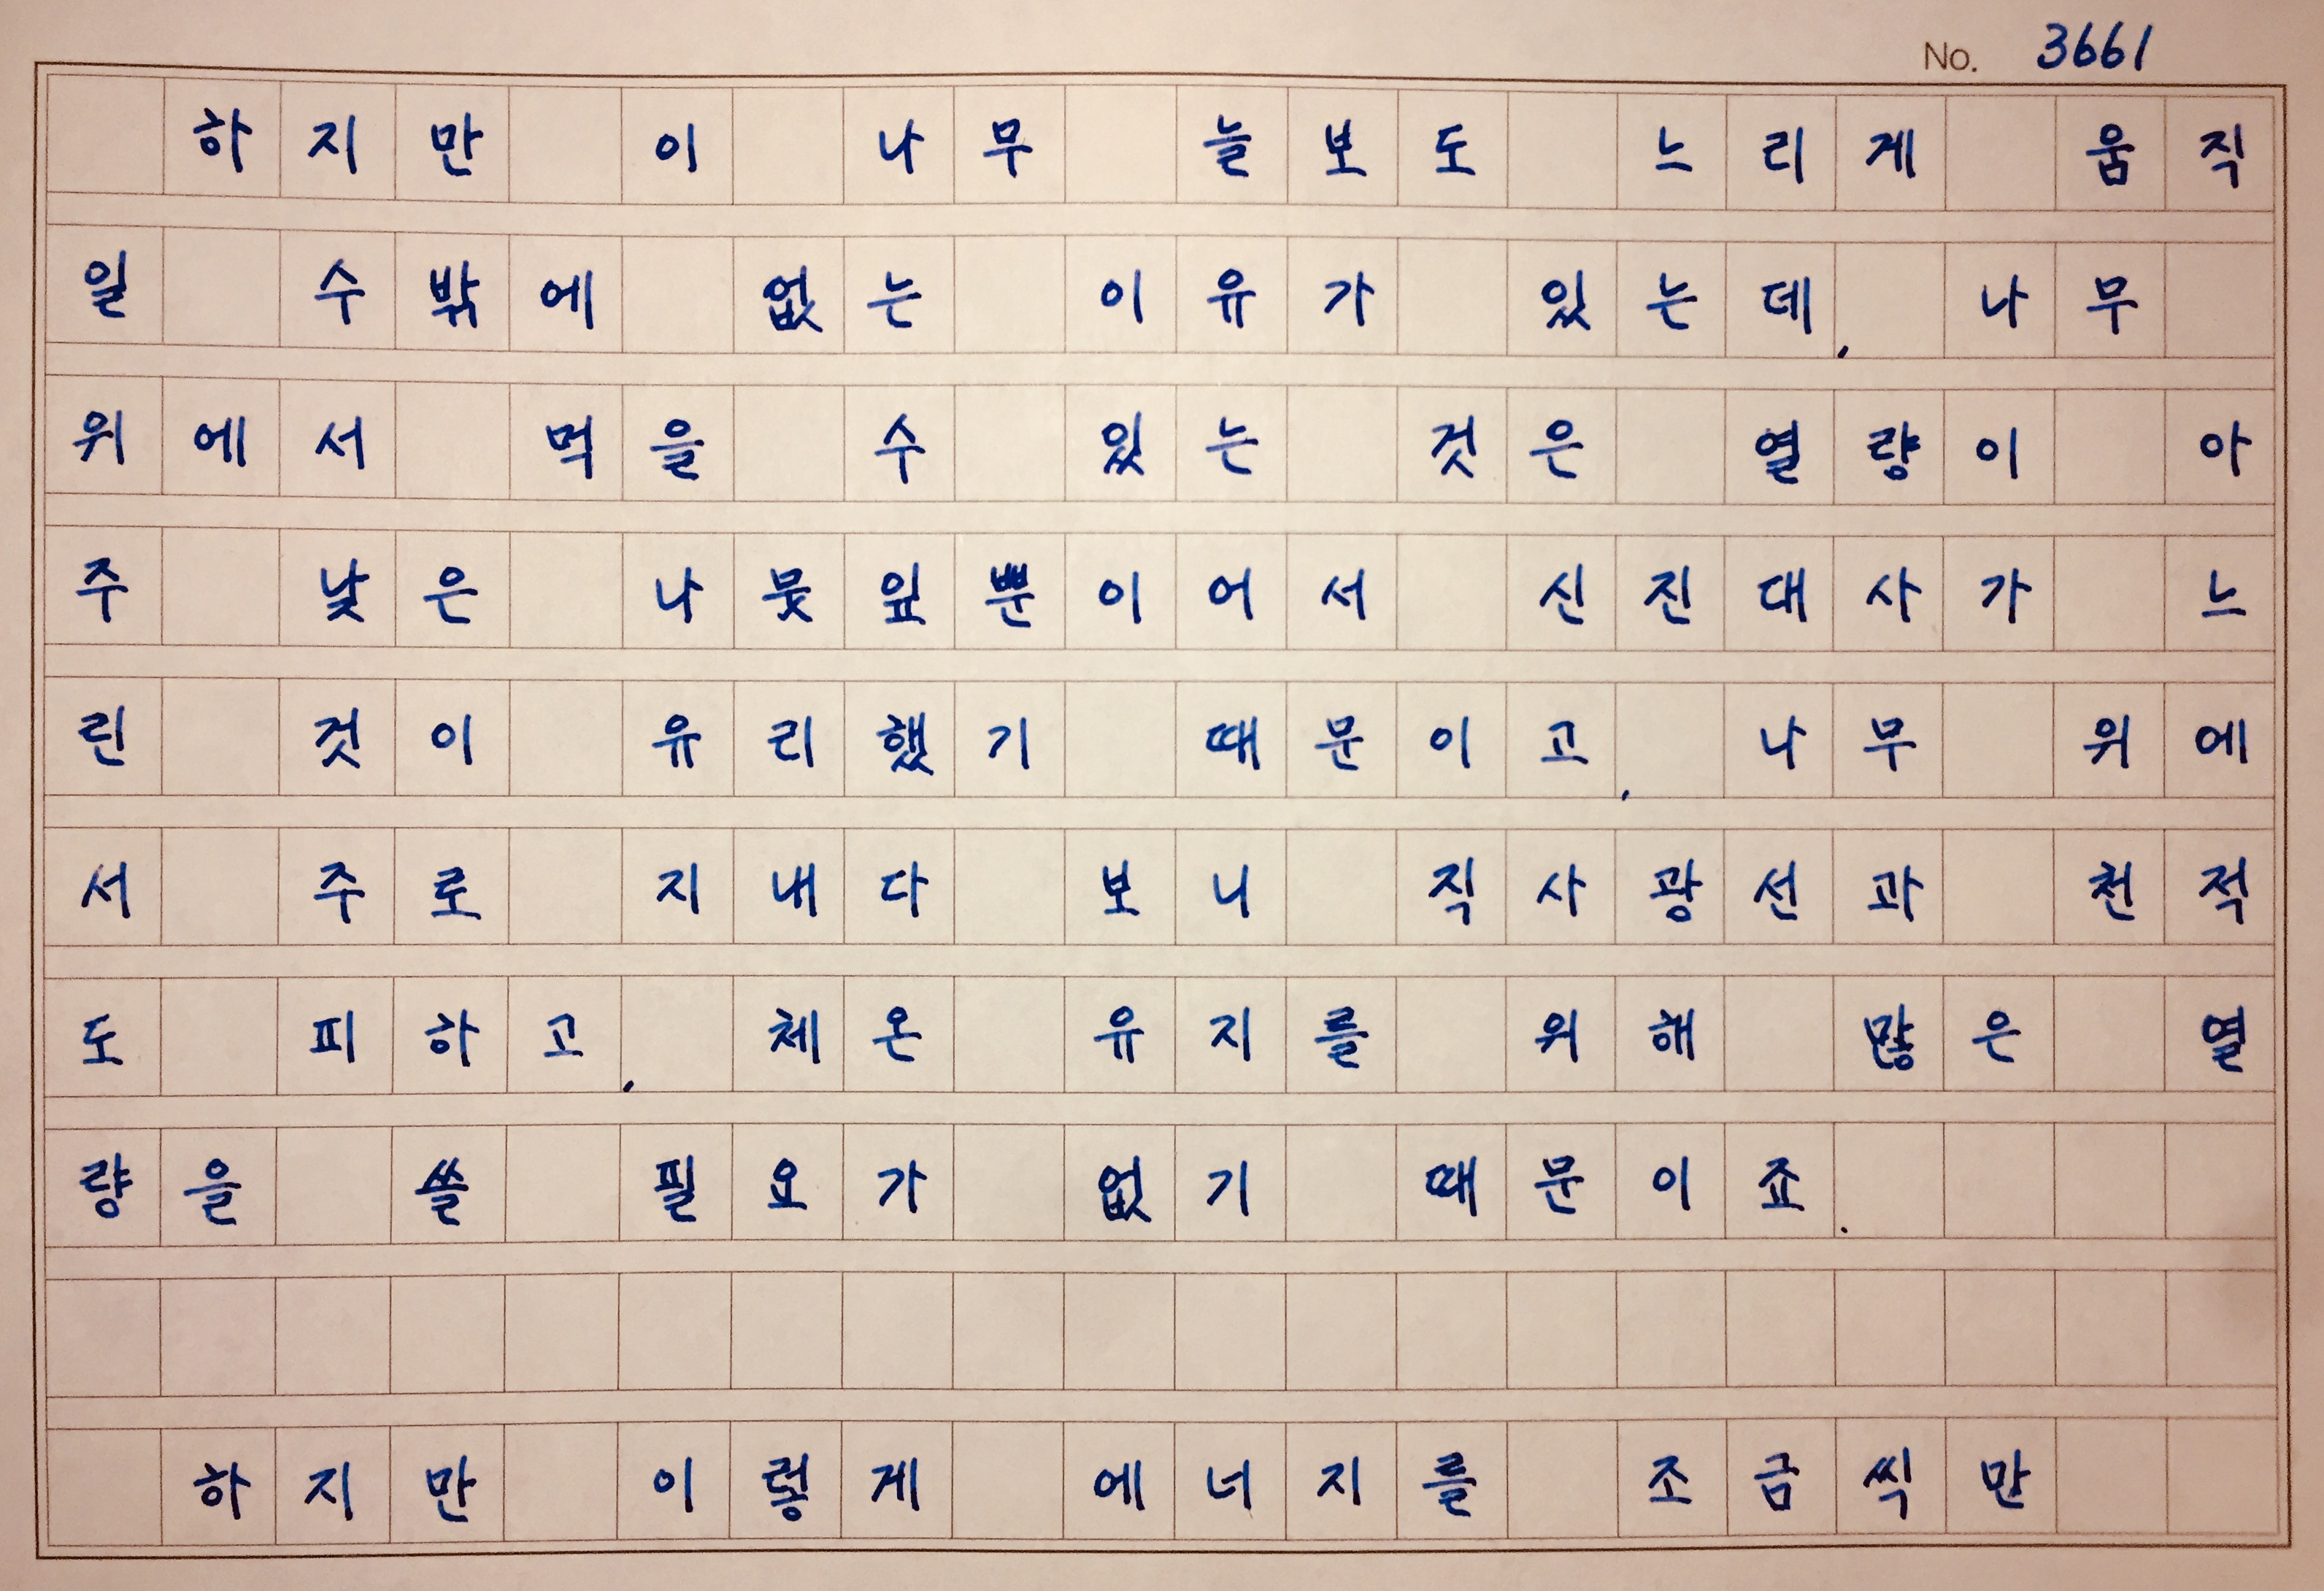 No. 3661
하지만 이 나무 늘보도 느리게 움직
일 수밖에 없는 이유가 있는데, 나무
위에서 먹을 수 있는 것은 열량이 아
주 낮은 나뭇잎뿐이어서 신진대사가 느
린 것이 유리했기 때문이고, 나무 위에
서 주로 지내다 보니 직사광선과 천적
도 피하고, 체온 유지를 위해 많은 열
량을 쓸 필요가 없기 때문이죠.
하지만 이렇게 에너지를 조금씩만